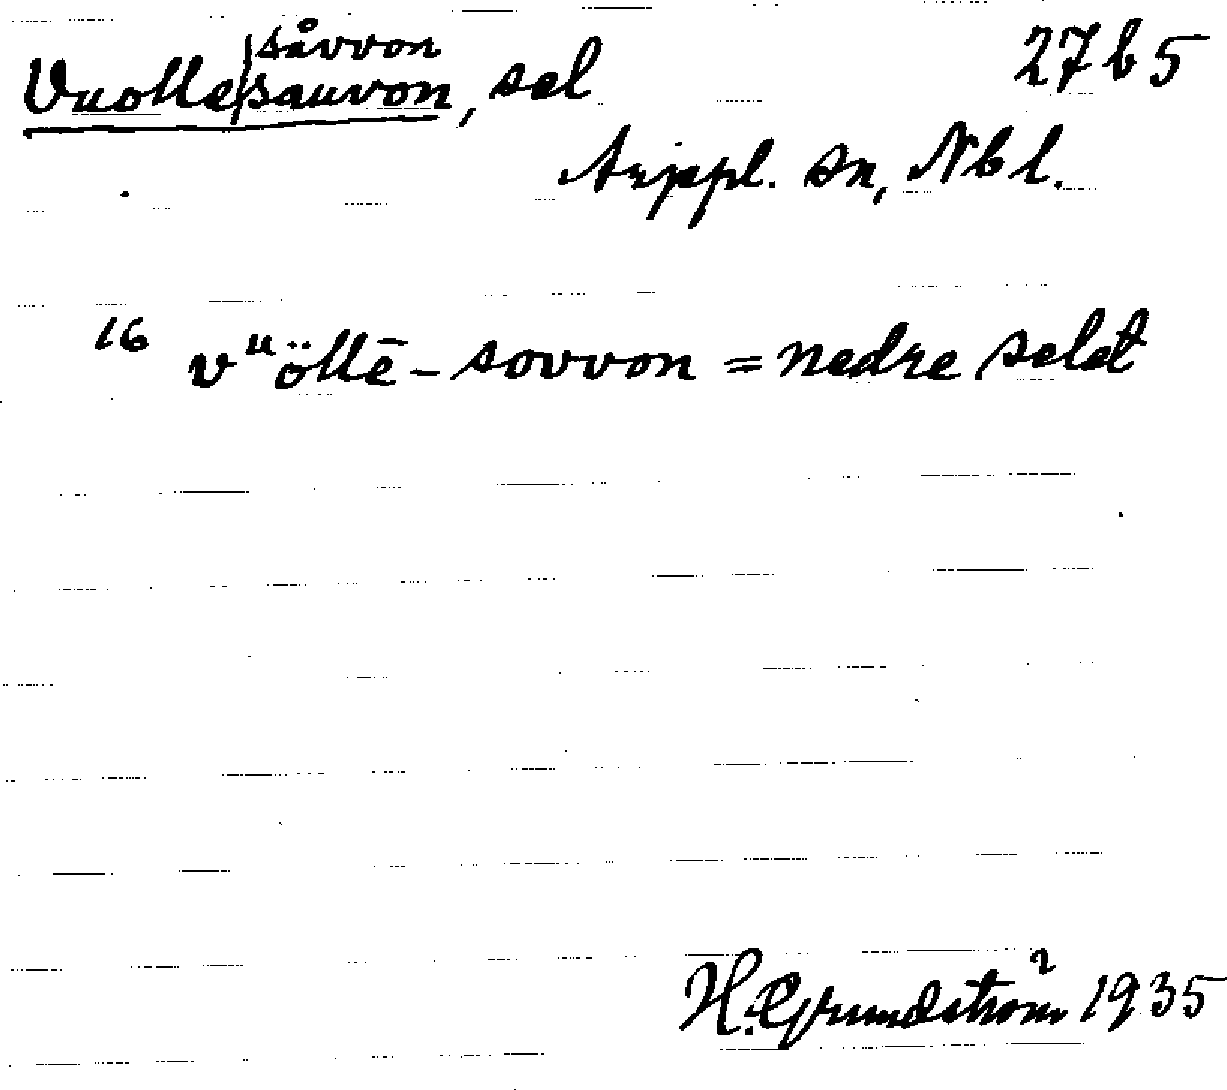 såvvon
Vuolle|sauvon, sel 27b5
Arjepl. sn, Nbl.
16 vᵘöllē - sovvon = nedre selet
H. Grundström 1935